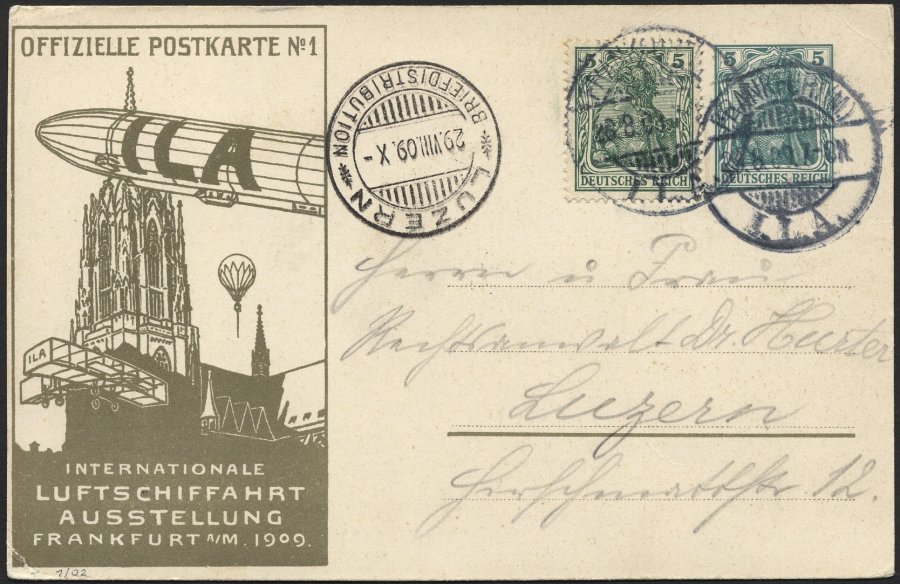 OFFIZIELLE POSTKARTE Nº 1
ILA
ILA
INTERNATIONALE
LUFTSCHIFFAHRT
AUSSTELLUNG
FRANKFURT A/M. 1909.
1/02
LUZERN
29.VIII.09.X-
* BRIEFDISTRIBUTION *
5 5
DEUTSCHES REICH
28.8.09
5 5
DEUTSCHES REICH
7-8N.
I.L.A.
Herrn u Frau
Rechtsanwalt Dr. Hurter
Luzern
Hirschmattstr 12.